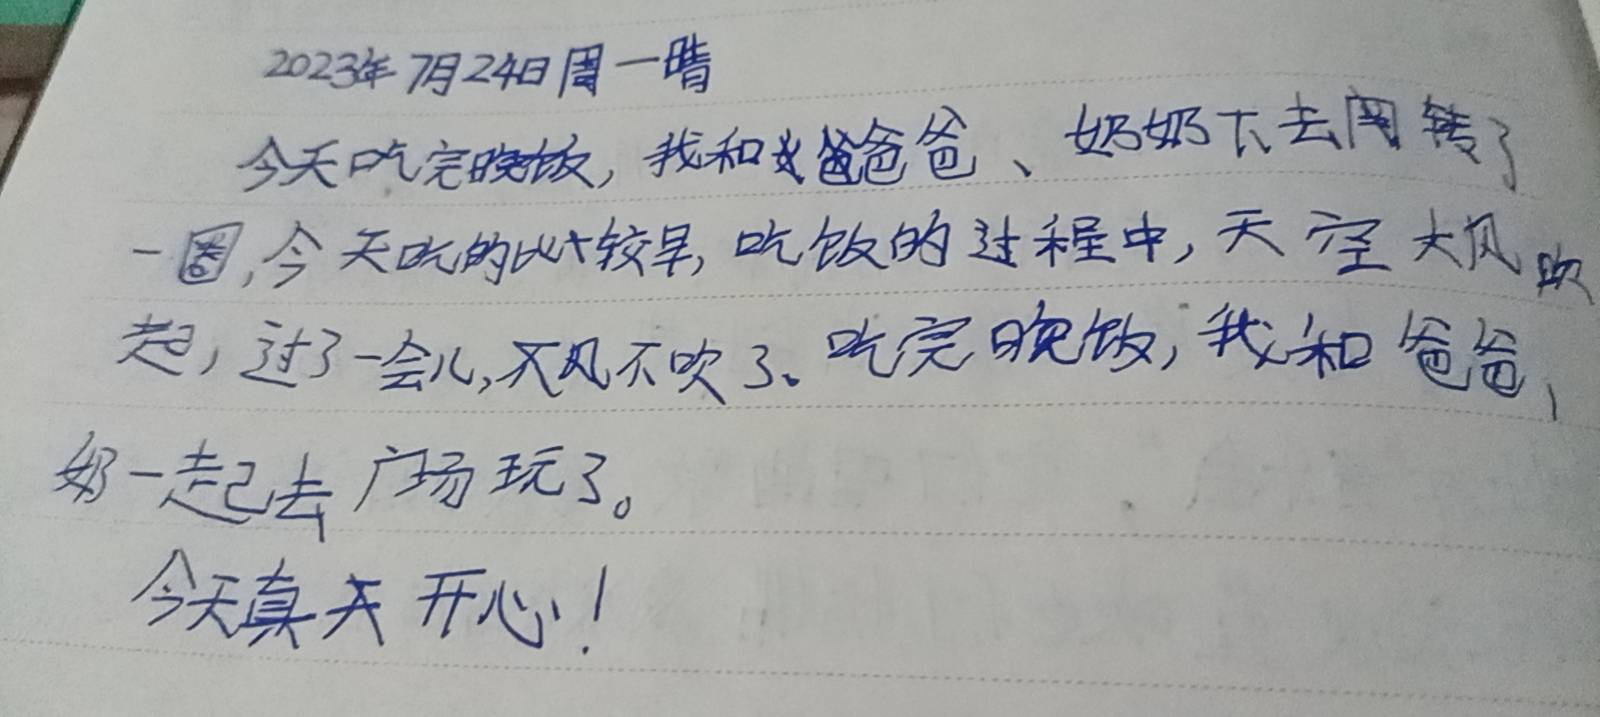 2023年7月24日周一晴
今天吃完晚饭，我和爸爸、奶奶下去转了
一圈，今天吃的比较早，吃饭的过程中，天空大风吹
起，过了一会儿，大风不吹了。吃完晚饭，我和爸爸、
奶一起去广场玩了。
今天真天开心！